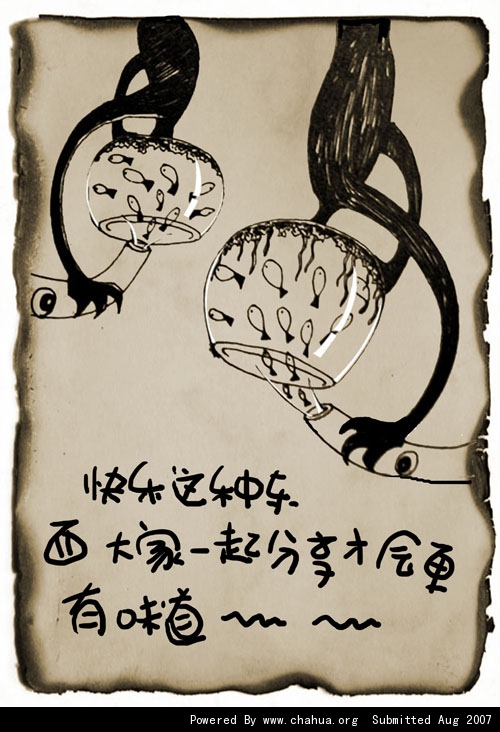 快乐这种东
西大家一起分享才会更
有味道~~ ~~
Powered By www.chahua.org Submitted Aug 2007